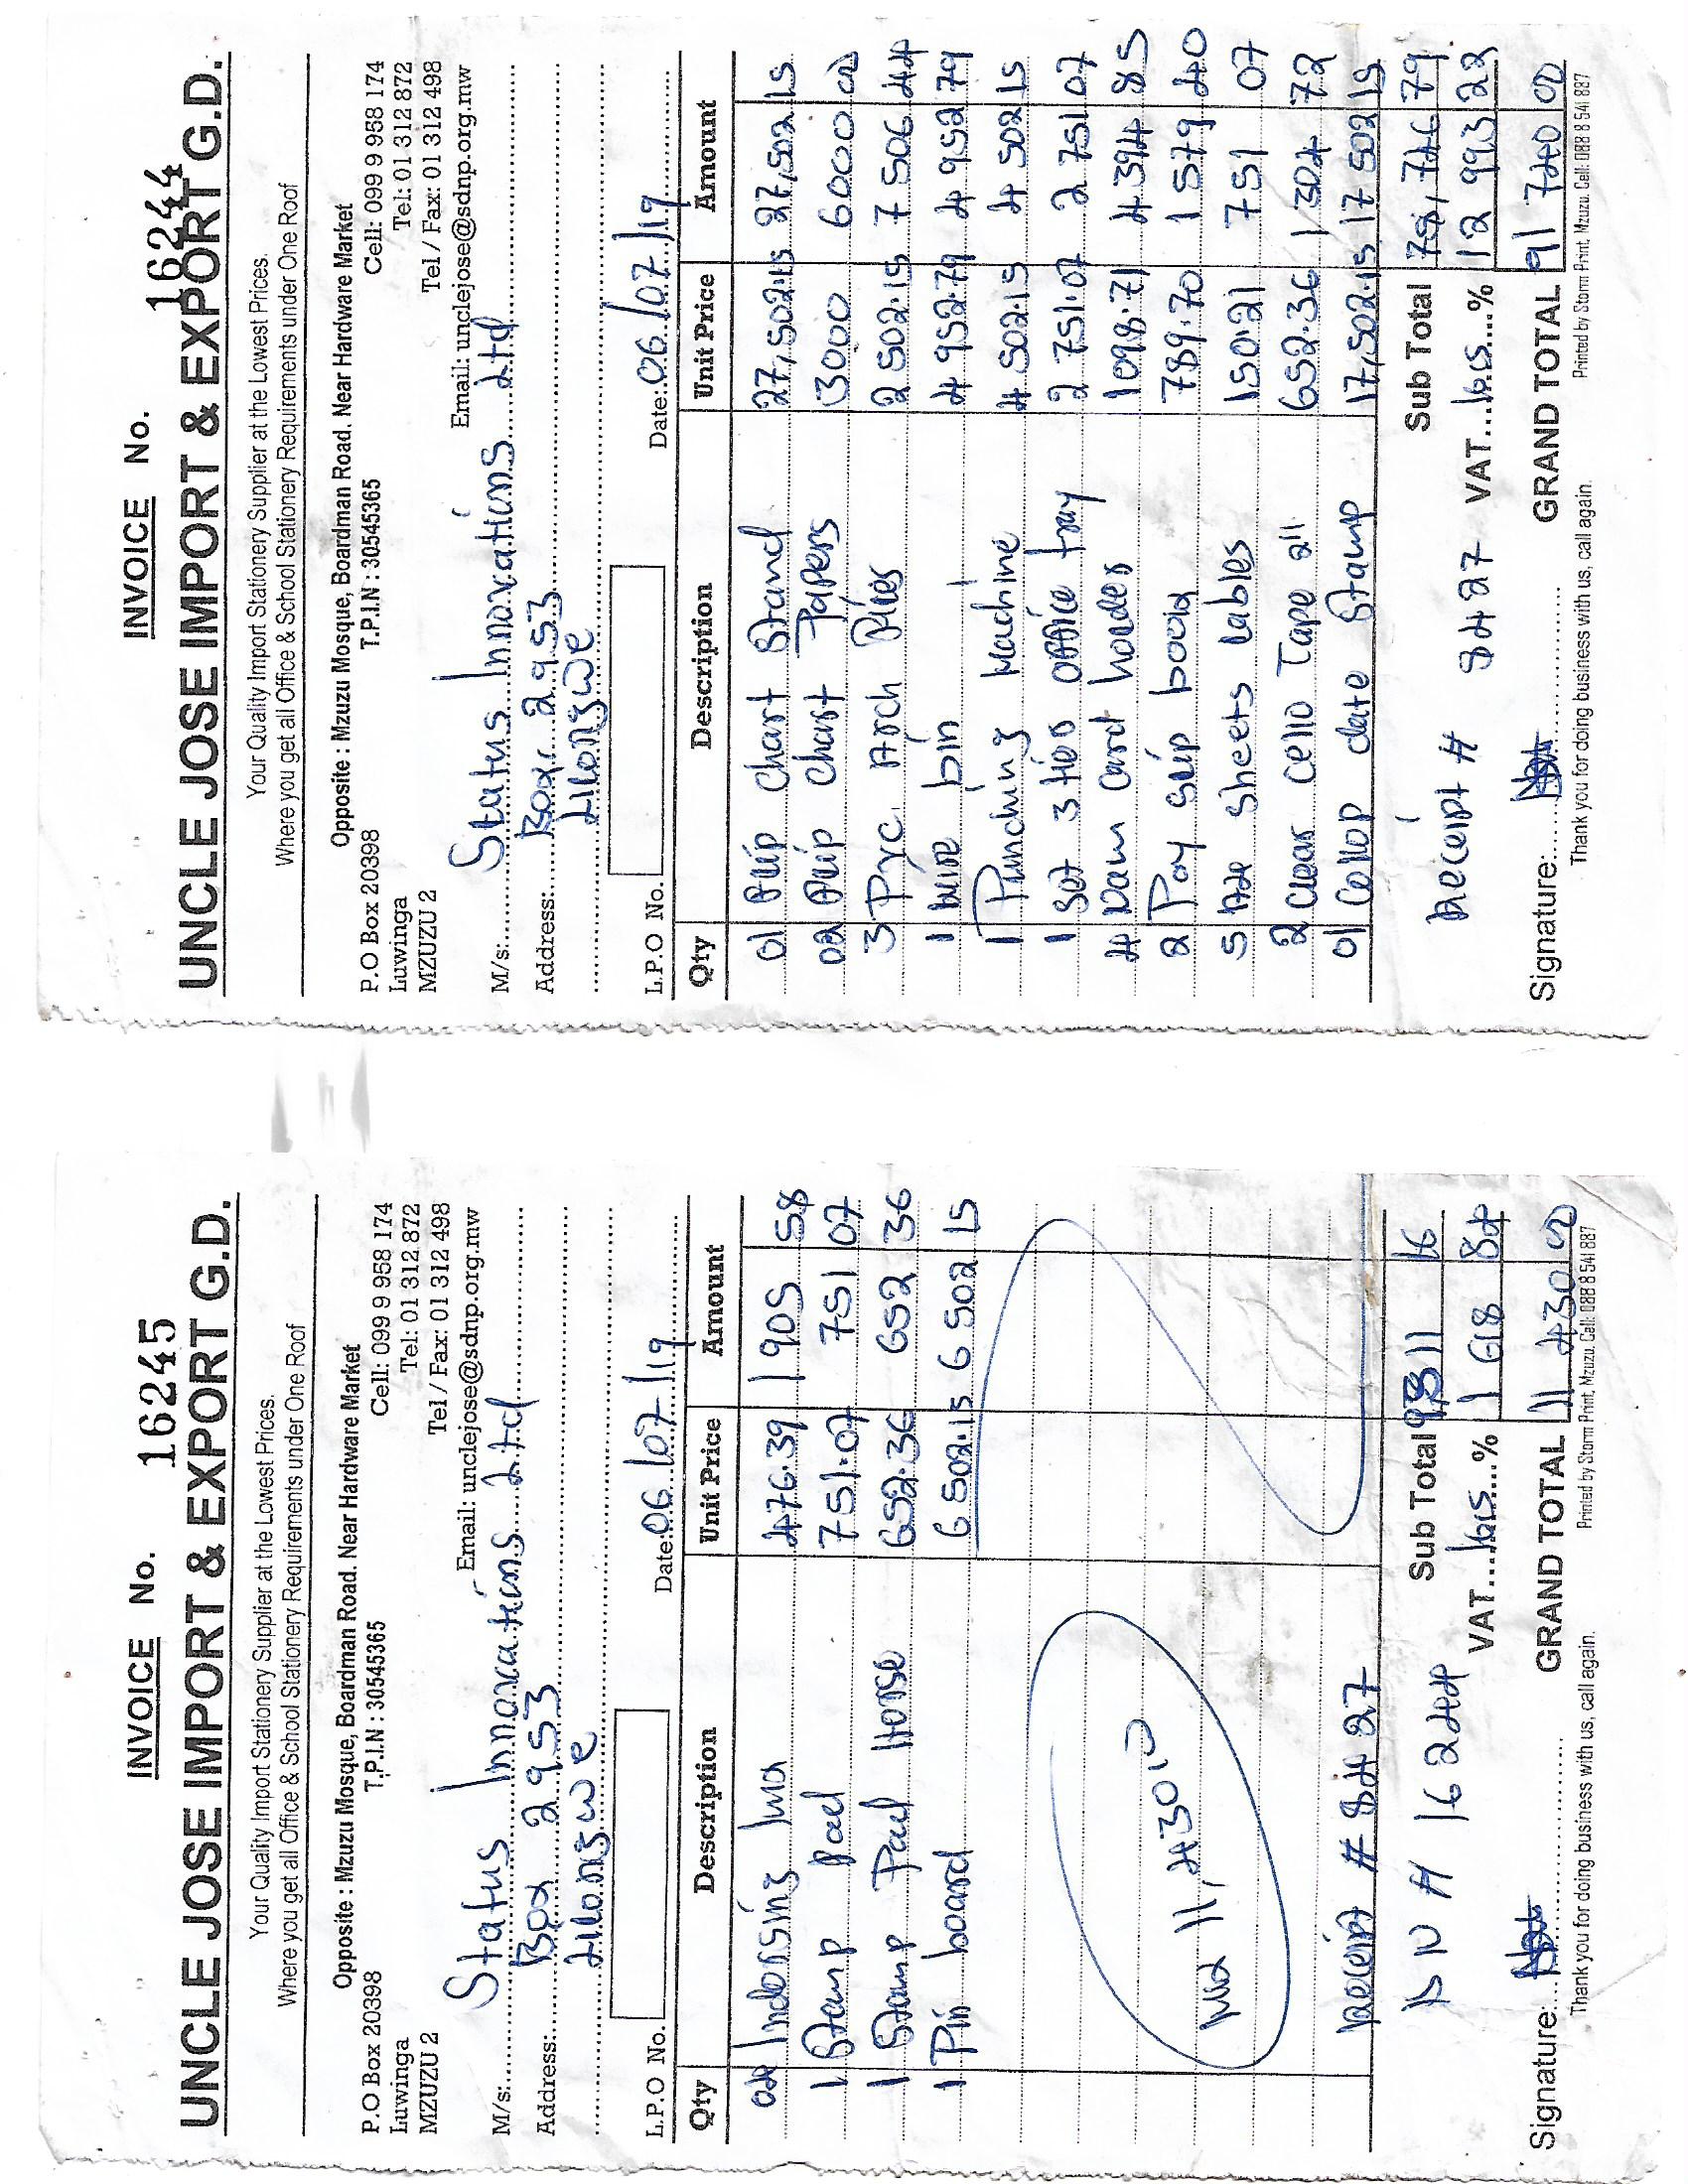 INVOICE No. 16244
UNCLE JOSE IMPORT & EXPORT G.D.
Your Quality Import Stationery Supplier at the Lowest Prices.
Where you get all Office & School Stationery Requirements under One Roof
Opposite : Mzuzu Mosque, Boardman Road. Near Hardware Market
P.O Box 20398 T.P.I.N : 30545365 Cell: 099 9 958 174
Luwinga Tel: 01 312 872
MZUZU 2 Tel / Fax: 01 312 498
Email: unclejose@sdnp.org.mw
M/s: Status Innovations Ltd
Address: Box 2953
Lilongwe
L.P.O No. Date: 06/07/19
Qty Description Unit Price Amount
01 Flip Chart Stand 27,502.15 27,502 15
02 Flip Chart Papers 3000 6000 00
3 Pvc Arch Files 2 502.15 7 506 44
1 wire bin 4 952.79 4 952 79
1 Punching Machine 4 502.15 4 502 15
1 Set 3 tier office tray 2 751.07 2 751 07
4 Name Card holder 1098.71 4 394 85
2 Pay slip book 789.70 1 579 40
5 A4 Sheets Lables 150.21 751 07
2 Clear Cello Tape 2" 652.36 1 304 72
01 Collop date Stamp 17,502.15 17 502 15
Sub Total 78,746 79
Receipt # 8427 VAT 16.5 % 12 993 22
GRAND TOTAL 91 740 00
Signature:
Thank you for doing business with us, call again. Printed by Storm Print, Mzuzu. Cell: 088 8 541 887
INVOICE No. 16245
UNCLE JOSE IMPORT & EXPORT G.D.
Your Quality Import Stationery Supplier at the Lowest Prices.
Where you get all Office & School Stationery Requirements under One Roof
Opposite : Mzuzu Mosque, Boardman Road. Near Hardware Market
P.O Box 20398 T.P.I.N : 30545365 Cell: 099 9 958 174
Luwinga Tel: 01 312 872
MZUZU 2 Tel / Fax: 01 312 498
Email: unclejose@sdnp.org.mw
M/s: Status Innovations Ltd
Address: Box 2953
Lilongwe
L.P.O No. Date: 06/07/19
Qty Description Unit Price Amount
04 Indorsing Ink 476.39 1 905 58
1 Stamp Pad 751.07 751 07
1 Stamp Pad Horse 652.36 652 36
1 Pin board 6 502.15 6 502 15
11,430.00
Receipt # 8427
Sub Total 9811 16
16244 VAT 16.5 % 1 618 84
GRAND TOTAL 11 430 00
Signature:
Thank you for doing business with us, call again. Printed by Storm Print, Mzuzu. Cell: 088 8 541 887